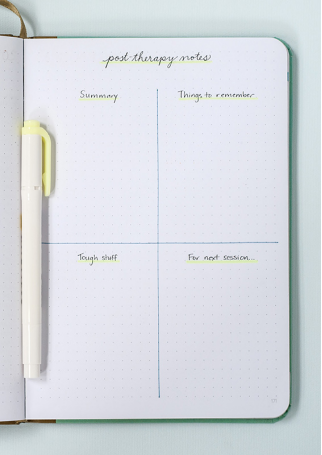 post-therapy notes
Summary
Things to remember
Tough stuff
For next session...